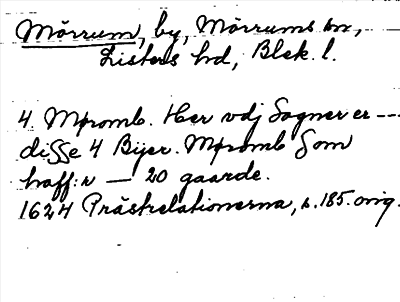 Mörrum, by, Mörrums sn,
Listers hd, Blek. l.
4. Mþromb. Her vdj Sogner er ---
disse 4 Bijer. Mþromb Som
haff:r — 20 gaarde.
1624 Prästrelationerna, s. 185. orig.